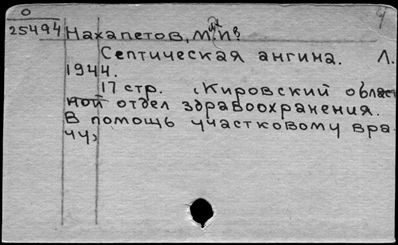 О
25494 Нахапетов, М. И.
Септическая ангина. Л.
1944.
17 стр. (Кировский област
ной отдел здравоохранения.
В помощь участковому вра
чу)